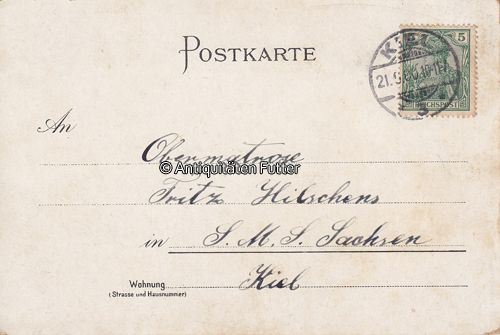 POSTKARTE
KIEL
5
21.9.00.10-11V.
REICHSPOST
An
Obermatrose
© Antiquitäten Futter
Fritz Hilschens
in S. M. S. Sachsen
Wohnung
(Strasse und Hausnummer)
Kiel